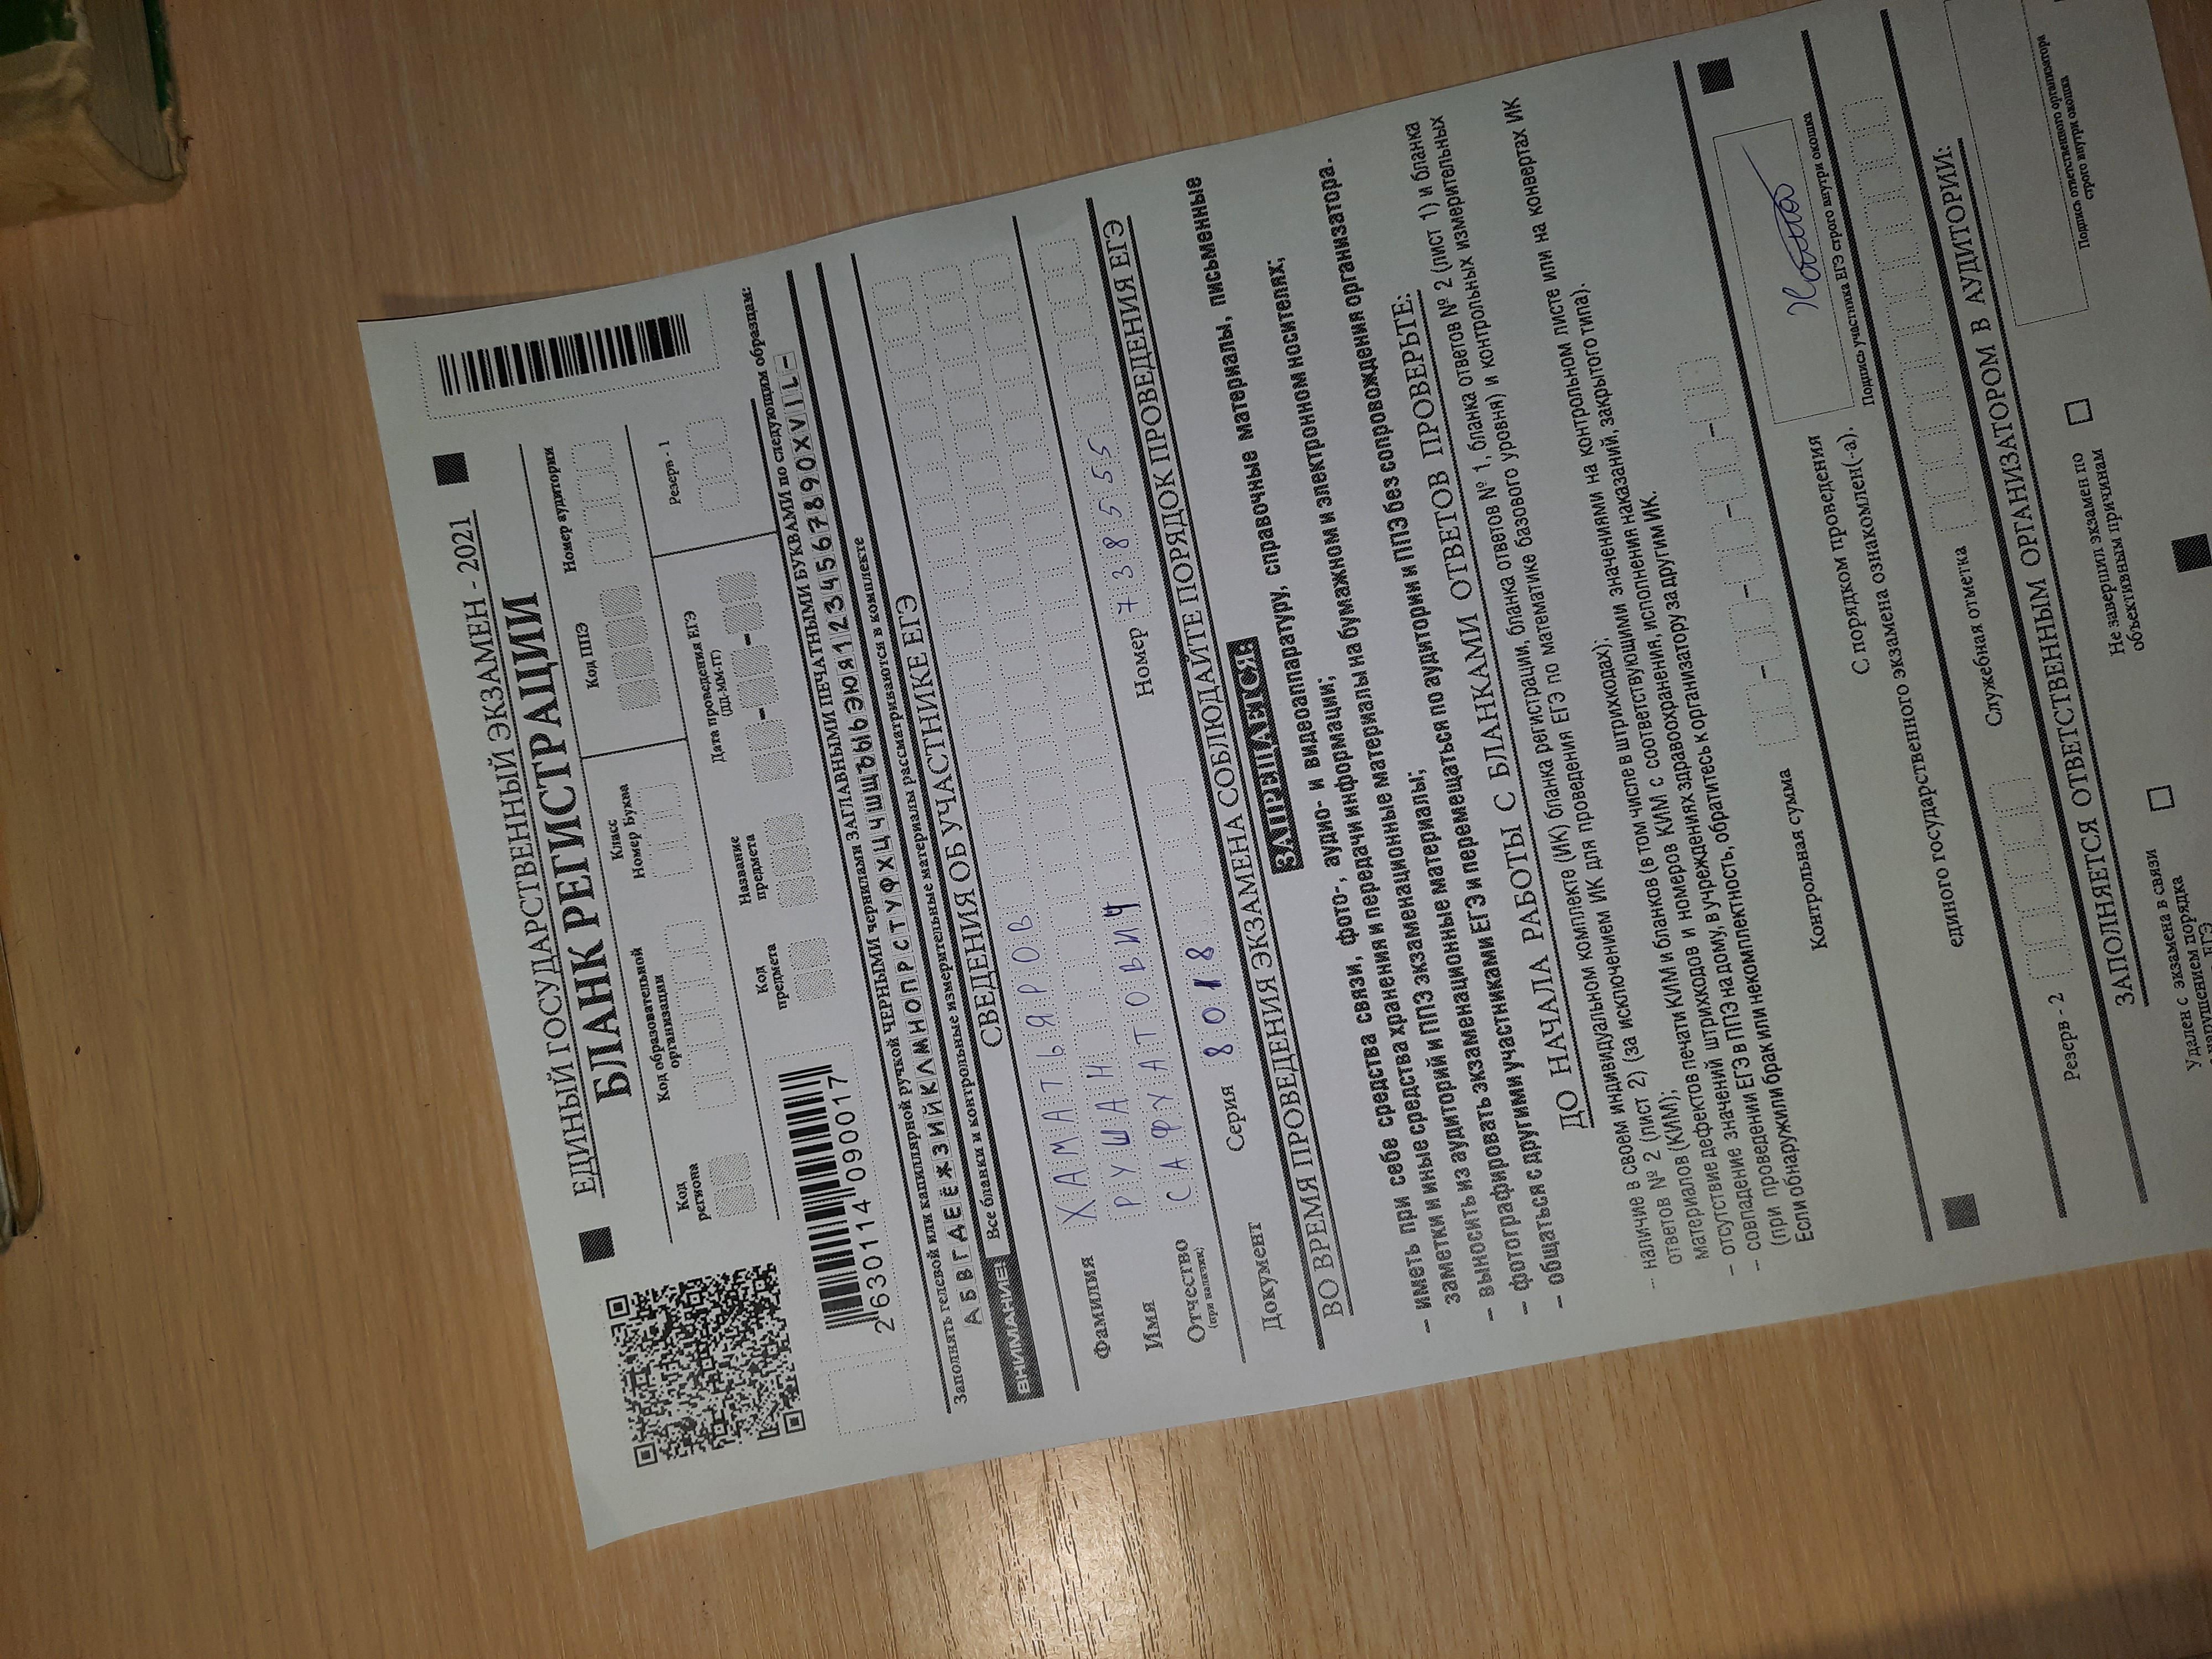 ЕДИНЫЙ ГОСУДАРСТВЕННЫЙ ЭКЗАМЕН - 2021
БЛАНК РЕГИСТРАЦИИ
Код региона
Код образовательной организации
Класс
Номер Буква
Код ППЭ
Номер аудитории
Код предмета
Название предмета
Дата проведения ЕГЭ
(ДД-ММ-ГГ)
Резерв - 1
2 630114 090017
Заполнять гелевой или капиллярной ручкой ЧЕРНЫМИ чернилами ЗАГЛАВНЫМИ ПЕЧАТНЫМИ БУКВАМИ по следующим образцам:
АБВГДЕЁЖЗИЙКЛМНОПРСТУФХЦЧШЩЪЫЬЭЮЯ1234567890XVIL-
ВНИМАНИЕ! Все бланки и контрольные измерительные материалы рассматриваются в комплекте
СВЕДЕНИЯ ОБ УЧАСТНИКЕ ЕГЭ
Фамилия ХАМАТЬЯРОВ
Имя РУШАН
Отчество САФУАТОВИЧ
(при наличии)
Документ Серия 8018 Номер 738555
ВО ВРЕМЯ ПРОВЕДЕНИЯ ЭКЗАМЕНА СОБЛЮДАЙТЕ ПОРЯДОК ПРОВЕДЕНИЯ ЕГЭ
ЗАПРЕЩАЕТСЯ:
– иметь при себе средства связи, фото-, аудио- и видеоаппаратуру, справочные материалы, письменные
заметки и иные средства хранения и передачи информации;
– выносить из аудиторий и ППЭ экзаменационные материалы на бумажном и электронном носителях;
– фотографировать экзаменационные материалы;
– общаться с другими участниками ЕГЭ и перемещаться по аудитории и ППЭ без сопровождения организатора.
ДО НАЧАЛА РАБОТЫ С БЛАНКАМИ ОТВЕТОВ ПРОВЕРЬТЕ:
– наличие в своем индивидуальном комплекте (ИК) бланка регистрации, бланка ответов № 1, бланка ответов № 2 (лист 1) и бланка
ответов № 2 (лист 2) (за исключением ИК для проведения ЕГЭ по математике базового уровня) и контрольных измерительных
материалов (КИМ);
– отсутствие дефектов печати КИМ и бланков (в том числе в штрихкодах);
– совпадение значений штрихкодов и номеров КИМ с соответствующими значениями на контрольном листе или на конвертах ИК
(при проведении ЕГЭ в ППЭ на дому, в учреждениях здравоохранения, исполнения наказаний, закрытого типа).
Если обнаружили брак или некомплектность, обратитесь к организатору за другим ИК.
Контрольная сумма
С порядком проведения
единого государственного экзамена ознакомлен(-а).
Подпись участника ЕГЭ строго внутри окошка
Служебная отметка
Резерв - 2
ЗАПОЛНЯЕТСЯ ОТВЕТСТВЕННЫМ ОРГАНИЗАТОРОМ В АУДИТОРИИ:
Удален с экзамена в связи
нарушением порядка
ЕГЭ
Не завершил экзамен по
объективным причинам
Подпись ответственного организатора
строго внутри окошка